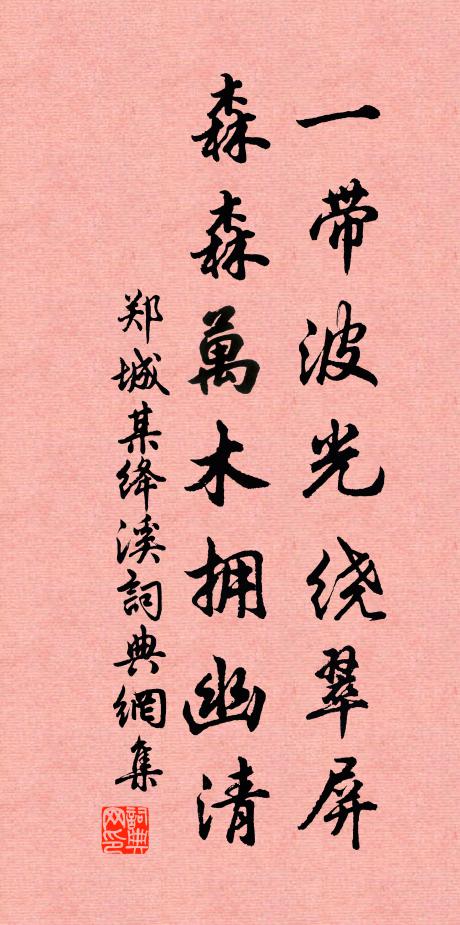 一带波光绕翠屏
森森萬木拥幽清
郑城某绛溪詞典網集
詞典网印